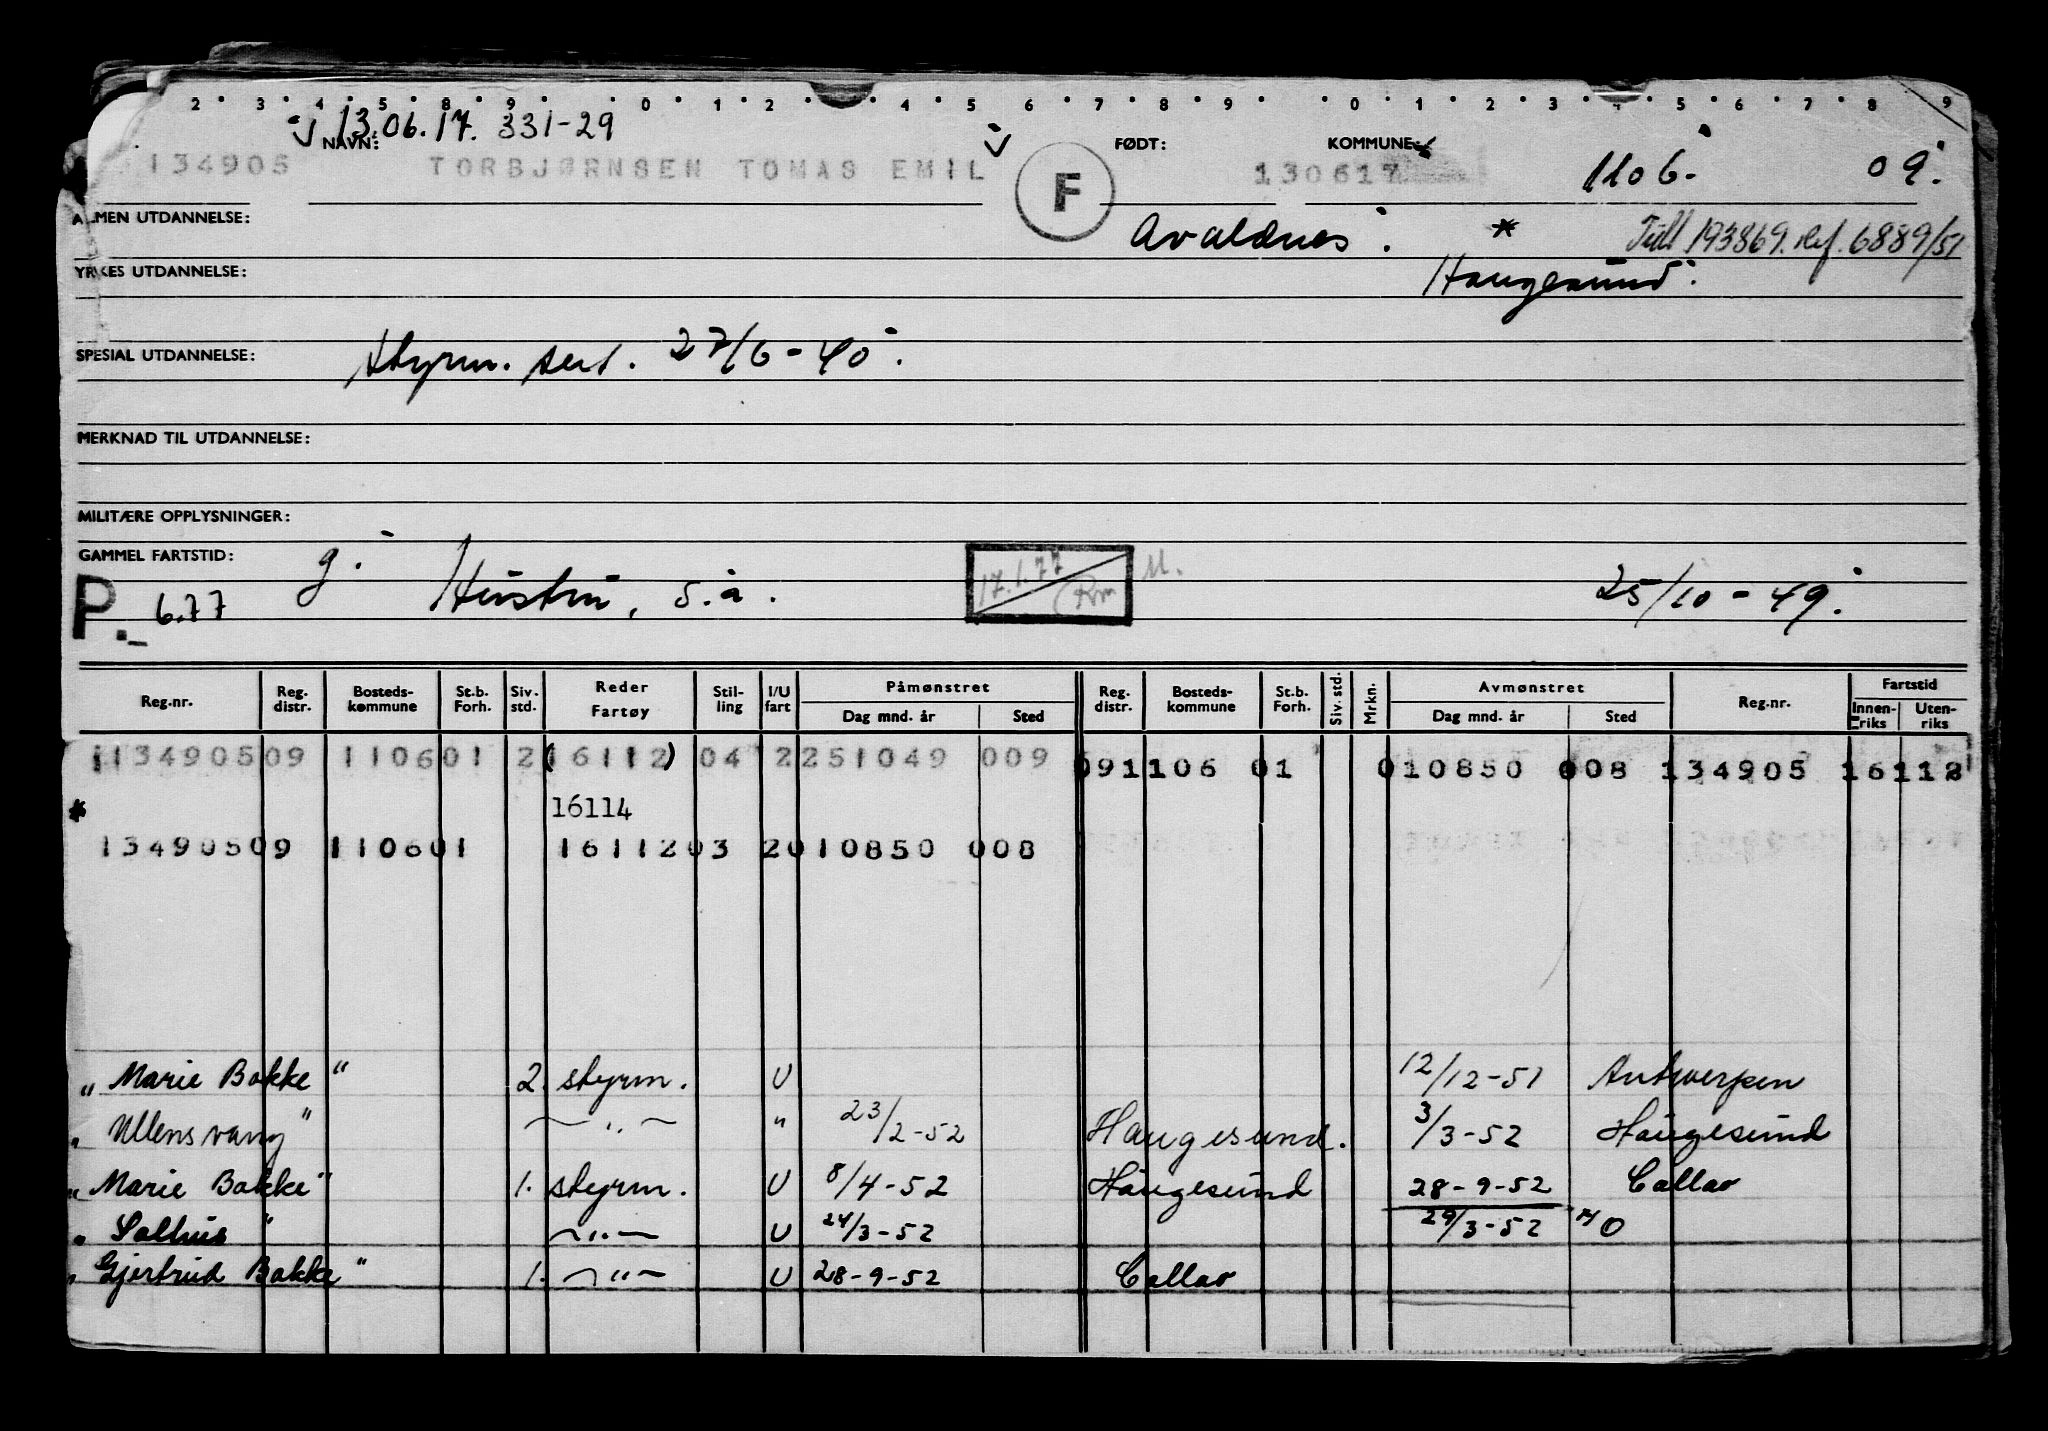 2 3 4 5 8 9 0 1 2 4 5 6 7 8 9 0 1 2 3 4 5 6 7 8 9
13.06.17. 331-29
NAVN: FØDT: KOMMUNE:
134905 TORBJØRNSEN TOMAS EMIL F 130617 1106. 09.
ALMEN UTDANNELSE: Avaldnes. * Tidl 193869. ref. 6889/51
YRKES UTDANNELSE: Haugesund.
SPESIAL UTDANNELSE: styrm. sert. 27/6-40.
MERKNAD TIL UTDANNELSE:
MILITÆRE OPPLYSNINGER:
GAMMEL FARTSTID: g.
P. 6.77 Hustru, s.a. 17.1.77 Rm M. 25/10-49.
Reg.nr. Reg. distr. Bosteds- kommune St.b. Forh. Siv. std. Reder Fartøy Stil- ling I/U fart Påmønstret Dag mnd. år Sted Reg. distr. Bosteds- kommune St.b. Forh. Siv. std. Mrkn. Avmønstret Dag mnd. år Sted Reg.nr. Fartstid Innen- riks Uten- riks
134905 09 1106 01 2 (16112) 04 2 251049 009 09 1106 01 010850 008 134905 16112
* 16114
134905 09 1106 01 16112 03 2 010850 008
"Marie Bakke" 2. styrm. U 12/12-51 Antwerpen
"Ullensvang" —"— " 23/2-52 Haugesund. 3/3-52 Haugesund
"Marie Bakke" 1. styrm. U 8/4-52 Haugesund 28-9-52 Callao
"Salhus" —"— U 24/3-52 29/3-52 MO
"Gjertrud Bakke" 1. —"— U 28-9-52 Callao